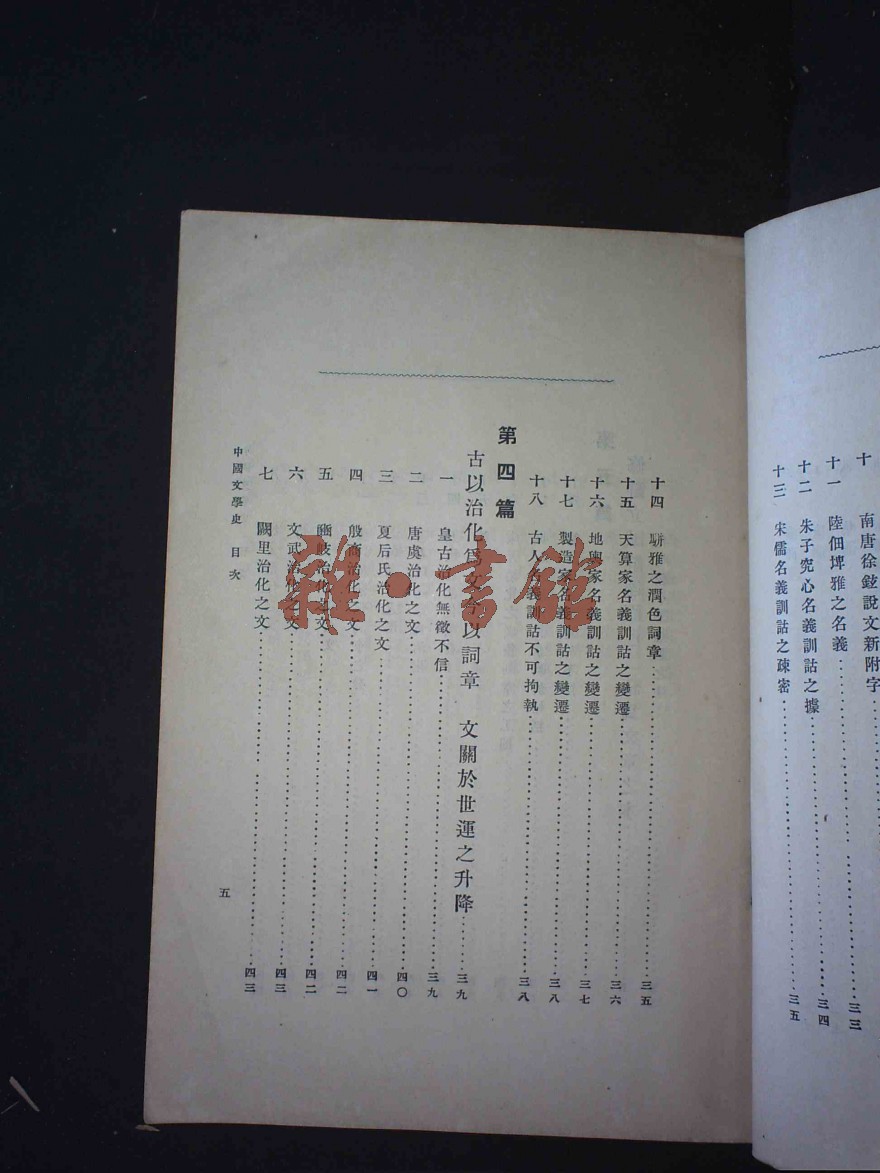 十 南唐徐鉉說文新附字……三三
十一 陸佃埤雅之名義……三四
十二 朱子究心名義訓詁之據
十三 宋儒名義訓詁之疎密……三五
十四 駢雅之潤色詞章……三五
十五 天算家名義訓詁之變遷……三六
十六 地輿家名義訓詁之變遷……三七
十七 製造家名義訓詁之變遷……三八
十八 古人名義訓詁不可拘執……三八
第四篇
古以治化為文今以詞章 文關於世運之升降……三九
一 皇古治化無徵不信……三九
二 唐虞治化之文……四〇
三 夏后氏治化之文……四一
四 殷商治化之文……四二
五 豳岐治化之文……四二
六 文武治化之文……四三
七 闕里治化之文……四三
中國文學史 目次
五
雜·書館